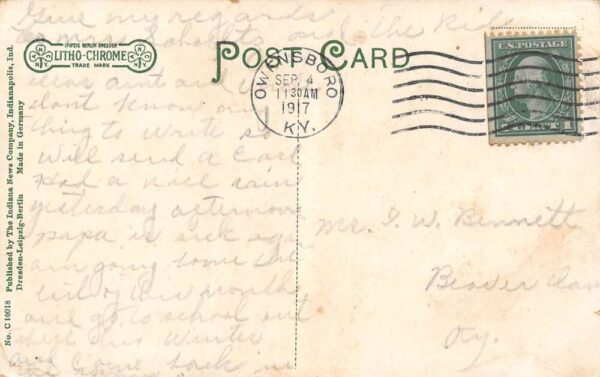 Give my regards
to Mrs. and the Kids
LEIPZIG BERLIN DRESDEN
LITHO-CHROME
TRADE MARK
POST CARD
OWENSBORO
SEP. 4
11 30 AM
1917
KY.
U.S. POSTAGE
1 CENT 1
Dear aunt and
dont know any
thing to write so
will send a card
Had a nice rain
yesterday afternoon
papa is sick again
am going home
of this month
and go to school out
there this winter
and come back in
Mr. I. W. Bennett
Beaver Dam
Ky.
No. C 10018 Published by The Indiana News Company, Indianapolis, Ind.
Dresden-Leipzig-Berlin Made in Germany